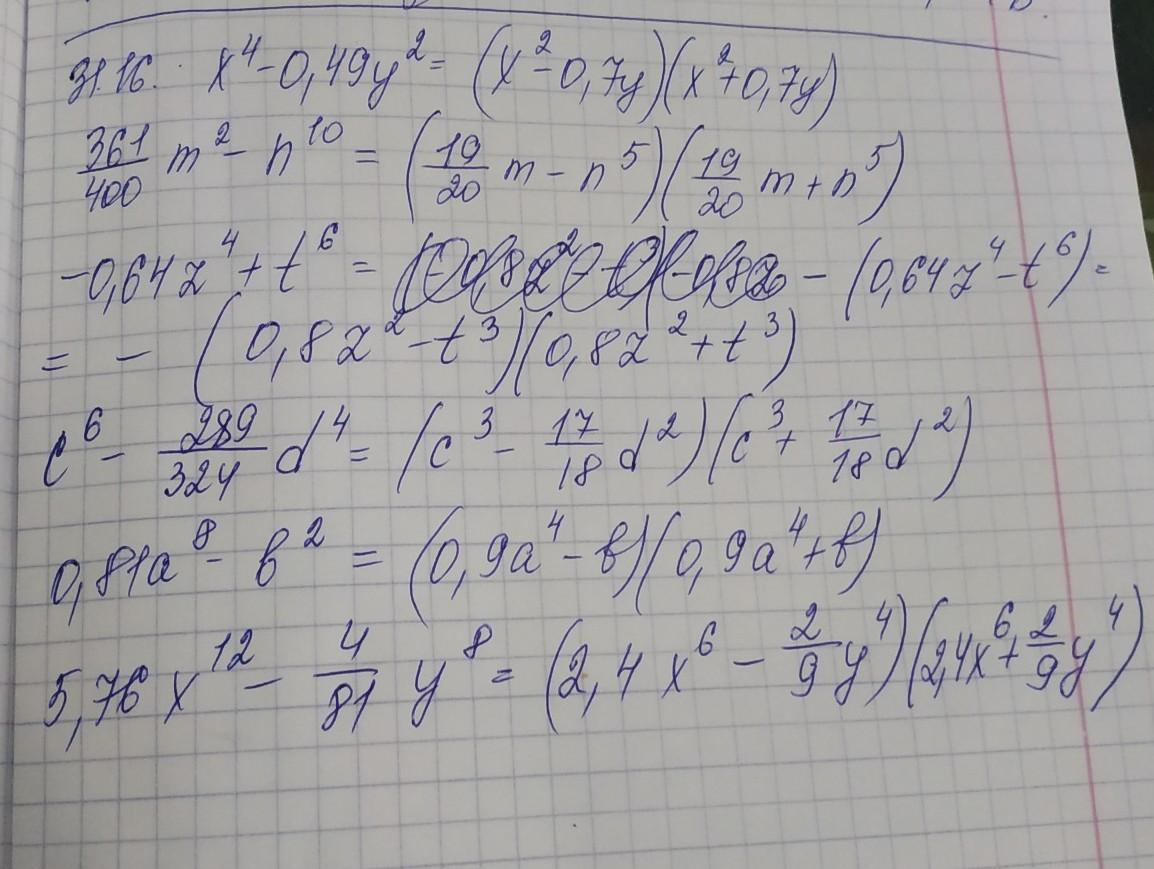 31.16. x⁴-0,49y²= (x²-0,7y)(x²+0,7y)
361/400 m²- n¹⁰ = (19/20 m - n⁵)(19/20 m + n⁵)
-0,64z⁴+t⁶ = - (0,64z⁴-t⁶)=
= - (0,8z²-t³)(0,8z²+t³)
c⁶- 289/324 d⁴= (c³- 17/18 d²)(c³+ 17/18 d²)
0,81a⁸- b² = (0,9a⁴-b)(0,9a⁴+b)
5,76 x¹²- 4/81 y⁸= (2,4 x⁶- 2/9 y⁴)(2,4x⁶+ 2/9 y⁴)